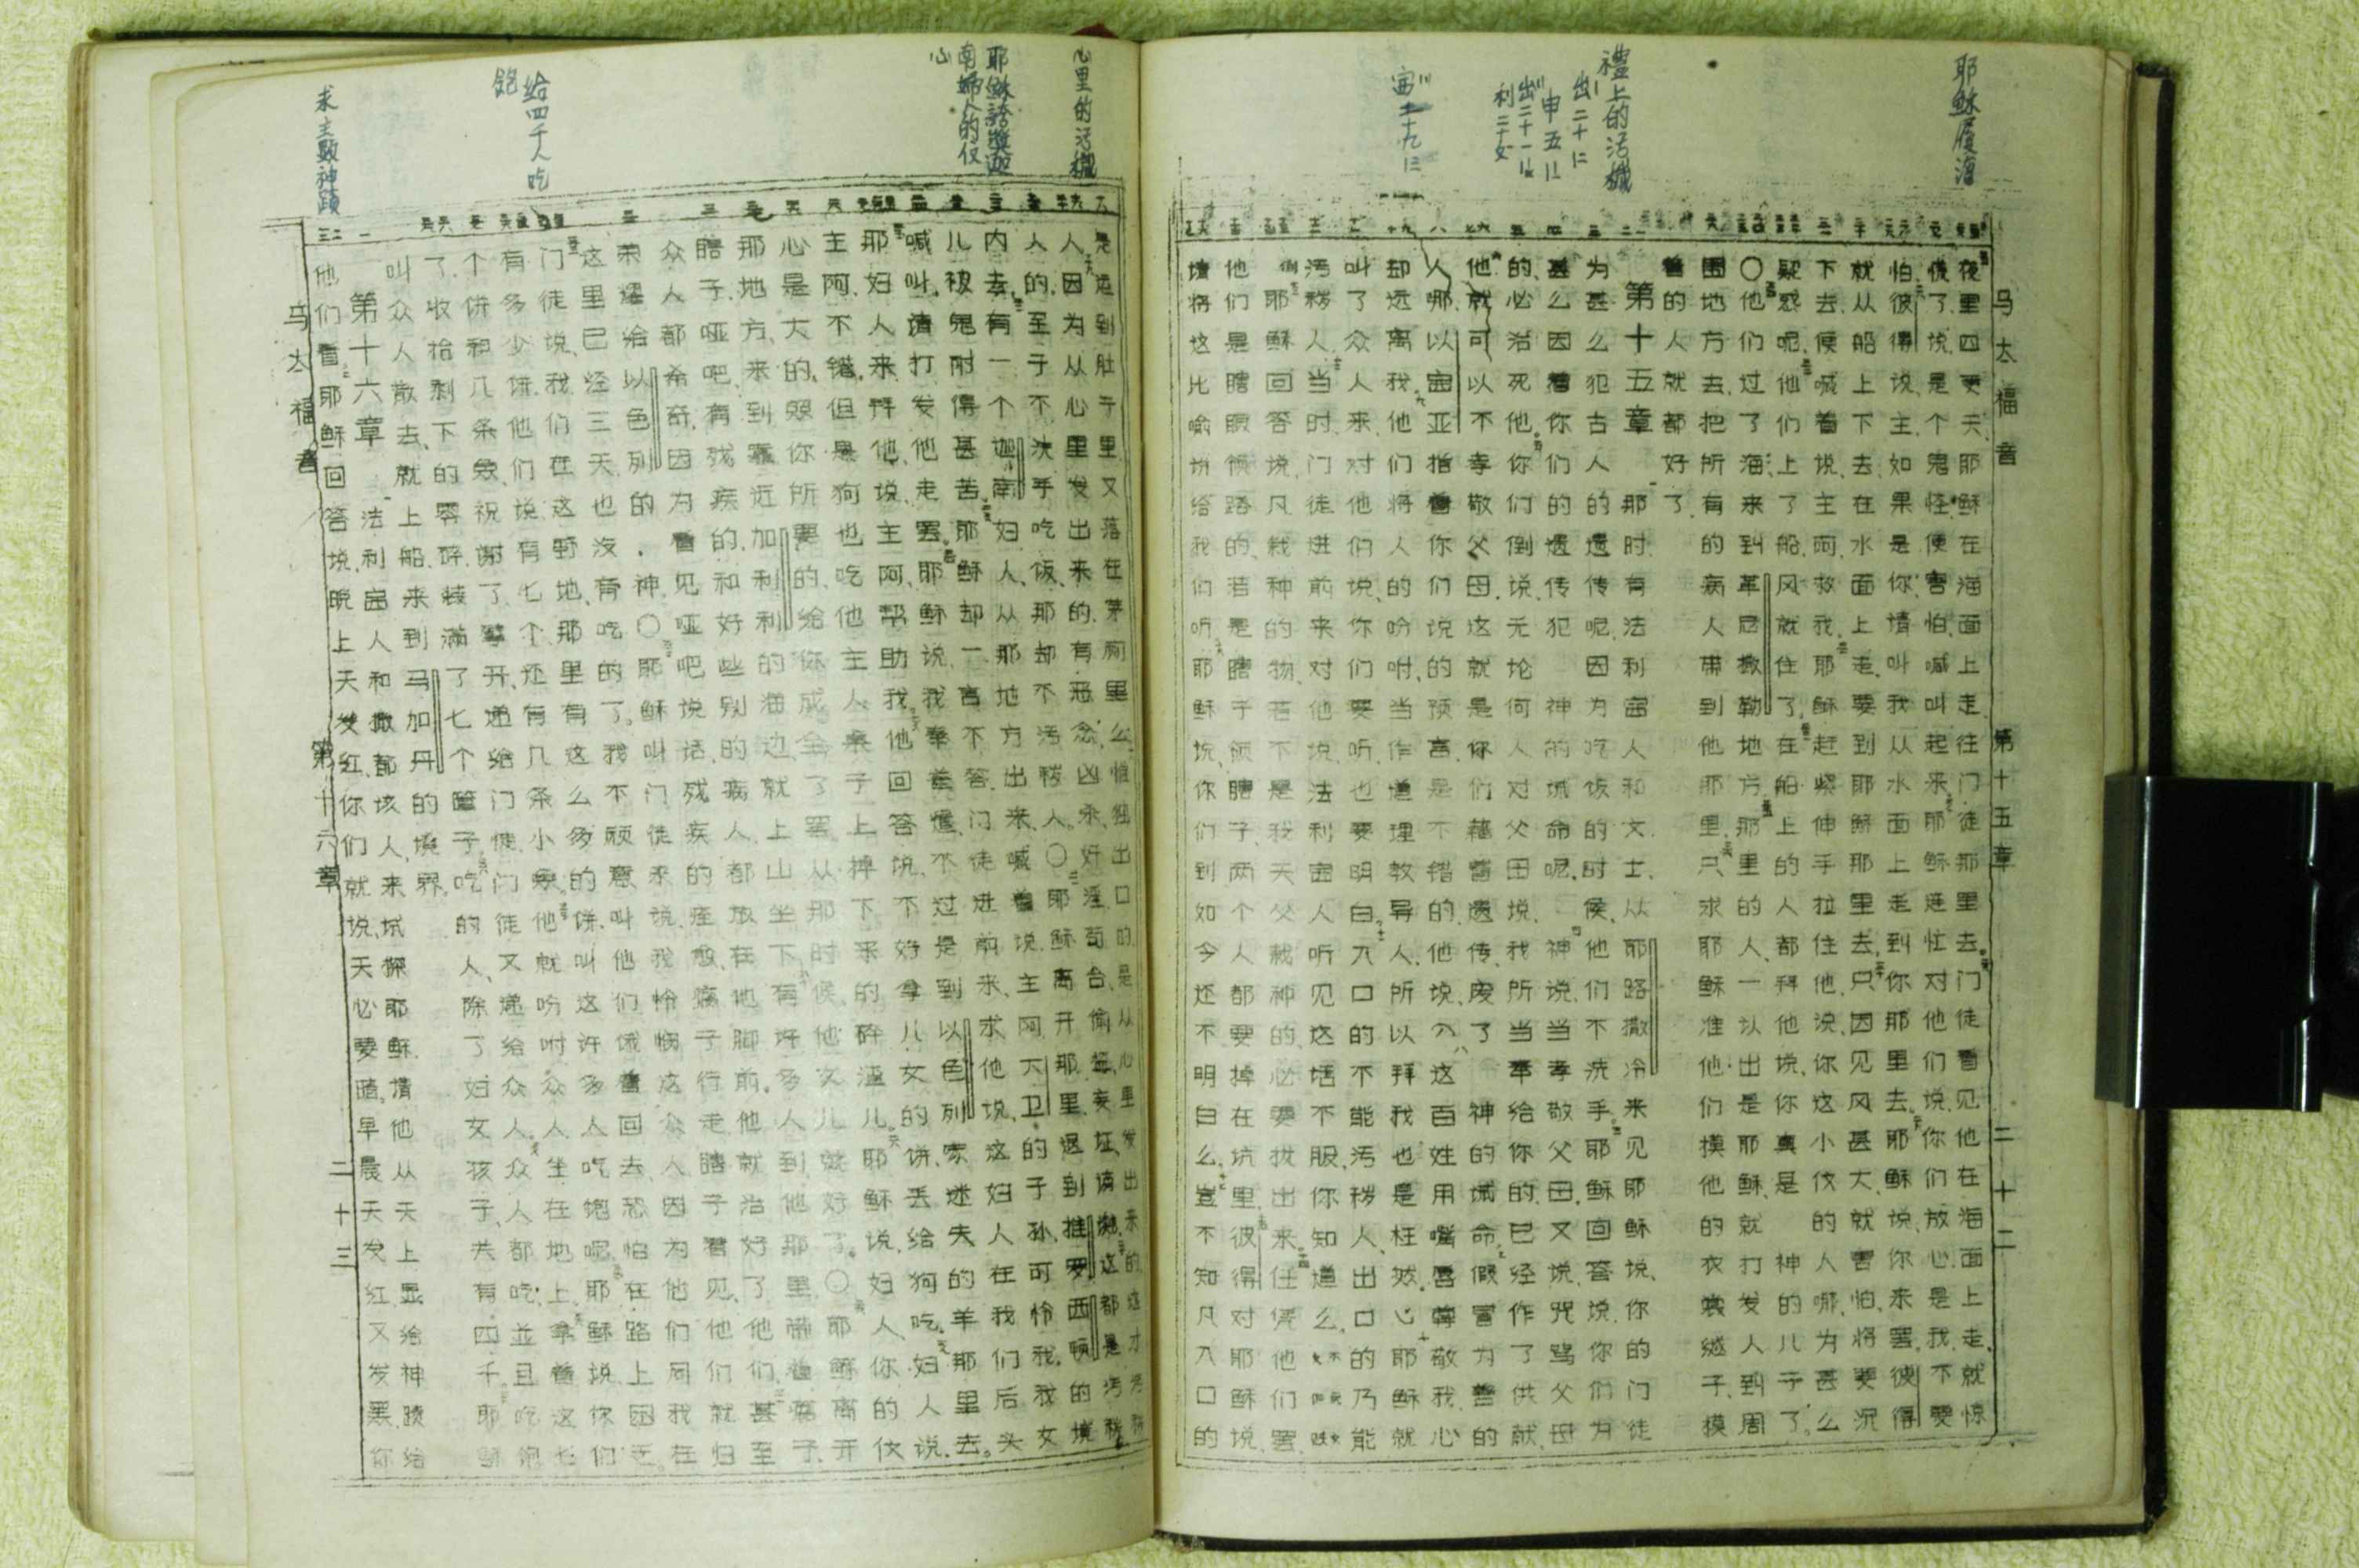 耶稣履海
禮上的污穢
马太福音 第十五章 二十二
夜里四更天、耶稣在海面上走、往门徒那里去。门徒看见他在海面上走、就惊
慌了、说、是个鬼怪、便害怕、喊叫起来。耶稣连忙对他们说、你们放心、是我、不要
怕。彼得说、主、如果是你、请叫我从水面上走到你那里去。耶稣说、你来罢、彼得
就从船上下去、在水面上走、要到耶稣那里去、只因见风甚大、就害怕、将要沉
下去、便喊着说、主阿、救我。耶稣赶紧伸手拉住他、说、你这小信的人哪、为甚么
疑惑呢。他们上了船、风就住了。在船上的人都拜他、说、你真是神的儿子了。
〇他们过了海、来到革尼撒勒地方。那里的人、一认出是耶稣、就打发人到周
围地方去、把所有的病人带到他那里。只求耶稣准他们摸他的衣裳繸子、摸
着的人就都好了。
第十五章 那时有法利赛人和文士、从耶路撒冷来见耶稣说、你的门徒
为甚么犯古人的遗传呢、因为吃饭的时候、他们不洗手。耶稣回答说、你们为
甚么因着你们的遗传、犯神的诫命呢。神说、当孝敬父母、又说、咒骂父母
的、必治死他。你们倒说、无论何人对父母说、我所当奉给你的、已经作了供献、
他就可以不孝敬父母、这就是你们藉着遗传、废了神的诫命。假冒为善的
人哪、以赛亚指着你们说的预言是不错的、他说、这百姓用嘴唇尊敬我、心
却远离我。他们将人的吩咐、当作道理教导人、所以拜我也是枉然。耶稣就
叫了众人来、对他们说、你们要听、也要明白。入口的不能污秽人、出口的乃能
污秽人。当时、门徒进前来对他说、法利赛人听见这话、不服、你知道么、
耶稣回答说、凡栽种的物、若不是我天父栽种的、必要拔出来。任凭他们罢、
他们是瞎眼领路的、若是瞎子领瞎子、两个人都要掉在坑里。彼得对耶稣说、
请将这比喻讲给我们听。耶稣说、你们到如今还不明白么、岂不知凡入口的
心里的污穢
耶稣誇獎迦
南婦人的信
心
给四千人吃
饱
求主顯神蹟
是运到肚子里、又落在茅厕里么。惟独出口的、是从心里发出来的、这才污秽
人。因为从心里发出来的、有恶念、凶杀、奸淫、苟合、偷盗、妄证、谤讟、这都是污秽
人的、至于不洗手吃饭、那却不污秽人。〇耶稣离开那里、退到推罗西顿的境
内去。有一个迦南妇人、从那地方出来、喊着说、主阿、大卫的子孙、可怜我、我女
儿被鬼附得甚苦。耶稣却一言不答。门徒进前来、求他说、这妇人在我们后头
喊叫、请打发他走罢。耶稣说、我奉差遣、不过是到以色列家迷失的羊那里去。
那妇人来拜他、说、主阿、帮助我。他回答说、不好拿儿女的饼、丢给狗吃。妇人说、
主阿、不错、但是狗也吃他主人桌子上掉下来的碎渣儿。耶稣说、妇人、你的信
心是大的、照你所要的、给你成全了罢。从那时候、他女儿就好了。〇耶稣离开
那地方、来到靠近加利利的海边、就上山坐下。有许多人到他那里、带着瘸子、
瞎子、哑吧、有残疾的、和好些别的病人、都放在他脚前。他就治好了他们。甚至
众人都希奇、因为看见哑吧说话、残疾的痊愈、瘸子行走、瞎子看见、他们就归
荣耀给以色列的 神。〇耶稣叫门徒来说、我怜悯这众人、因为他们同我在
这里已经三天、也没有吃的了。我不愿意叫他们饿着回去、恐怕在路上困乏。
门徒说、我们在这野地、那里有这么多的饼、叫这许多人吃饱呢。耶稣说、你们
有多少饼、他们说、有七个、还有几条小鱼。他就吩咐众人坐在地上、拿着这七
个饼和几条鱼、祝谢了、擘开、递给门徒、门徒又递给众人。众人都吃、並且吃饱
了、收拾剩下的零碎、装满了七个筐子。吃的人、除了妇女孩子、共有四千。耶稣
叫众人散去、就上船、来到马加丹的境界。
第十六章 法利赛人和撒都该人、来试探耶稣、请他从天上显给神蹟给
他们看。耶稣回答说、晚上天发红、你们就说、天必要晴。早晨天发红、又发黑、你
马太福音 第十六章 二十三